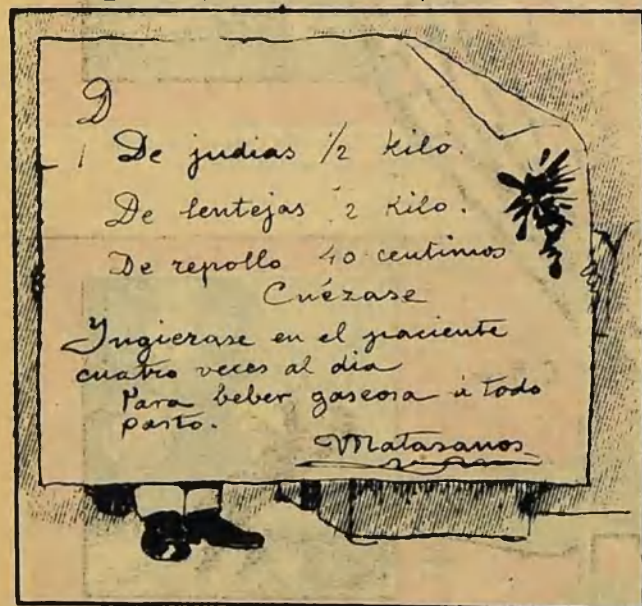 D
De judias 1/2 kilo.
De lentejas 2 kilo.
De repollo 40 centimos
Cuézase
Yngierase en el paciente
cuatro veces al dia
Para beber gaseosa a todo
pasto.
Matasanos